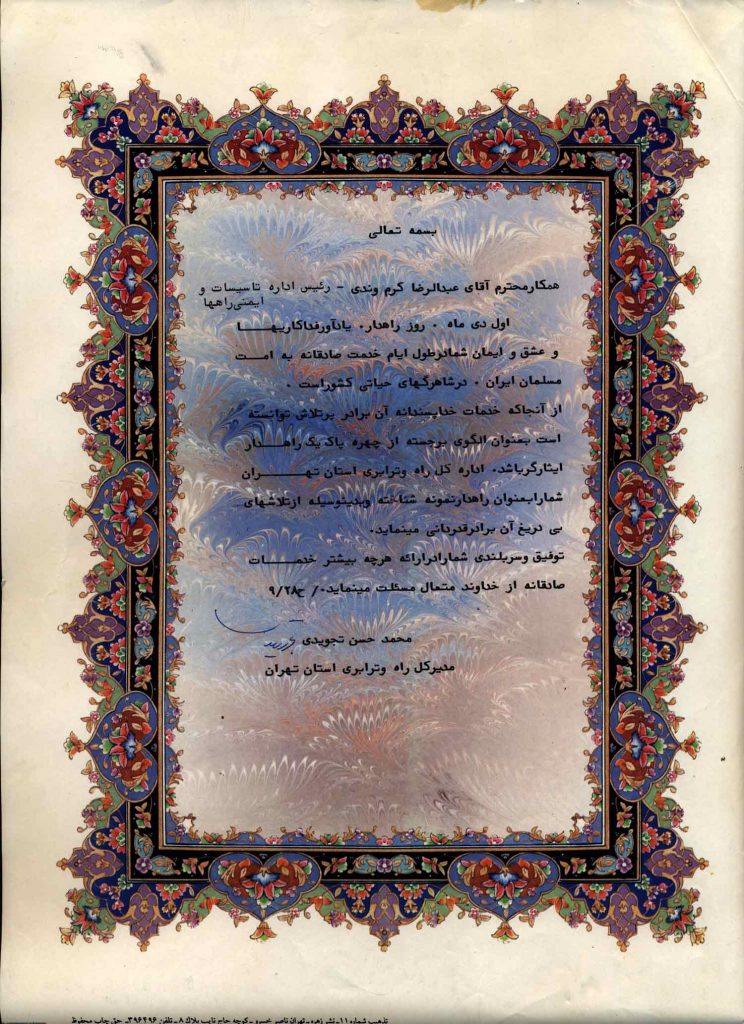 بسمه تعالی
همکارمحترم آقای عبدالرضا کرم وندی - رئیس اداره تاسیسات و
ایمنی راهها
اول دی ماه ۰ روز راهدار۰ یادآورفداکاریهـا
و عشق و ایمان شمادرطول ایام خدمت صادقانه به امت
مسلمان ایران ۰ درشاهرگهای حیاتی کشوراست ۰
از آنجاکه خدمات خداپسندانه آن برادر پرتلاش توانسته
است بعنوان الگوی برجسته از چهره پاک یک راهـدار
ایثارگرباشد۰ اداره کل راه وترابری استان تهـــران
شمارابعنوان راهدارنمونه شناخته وبدینوسیله ازتلاشهای
بی دریغ آن برادرقدردانی مینماید۰
توفیق وسربلندی شمارادرارائه هرچه بیشتر خدمـــات
صادقانه از خداوند متعال مسئلت مینماید۰/ ح۹/۲۸
محمد حسن تجویدی
مدیرکل راه وترابری استان تهران
تذهیب شماره ۱۱ـ نشر زهره ـ تهران ناصر خسرو ـ کوچه حاج نایب پلاک ۸ ـ تلفن ۳۹۶۴۹۶ـ حق چاپ محفوظ